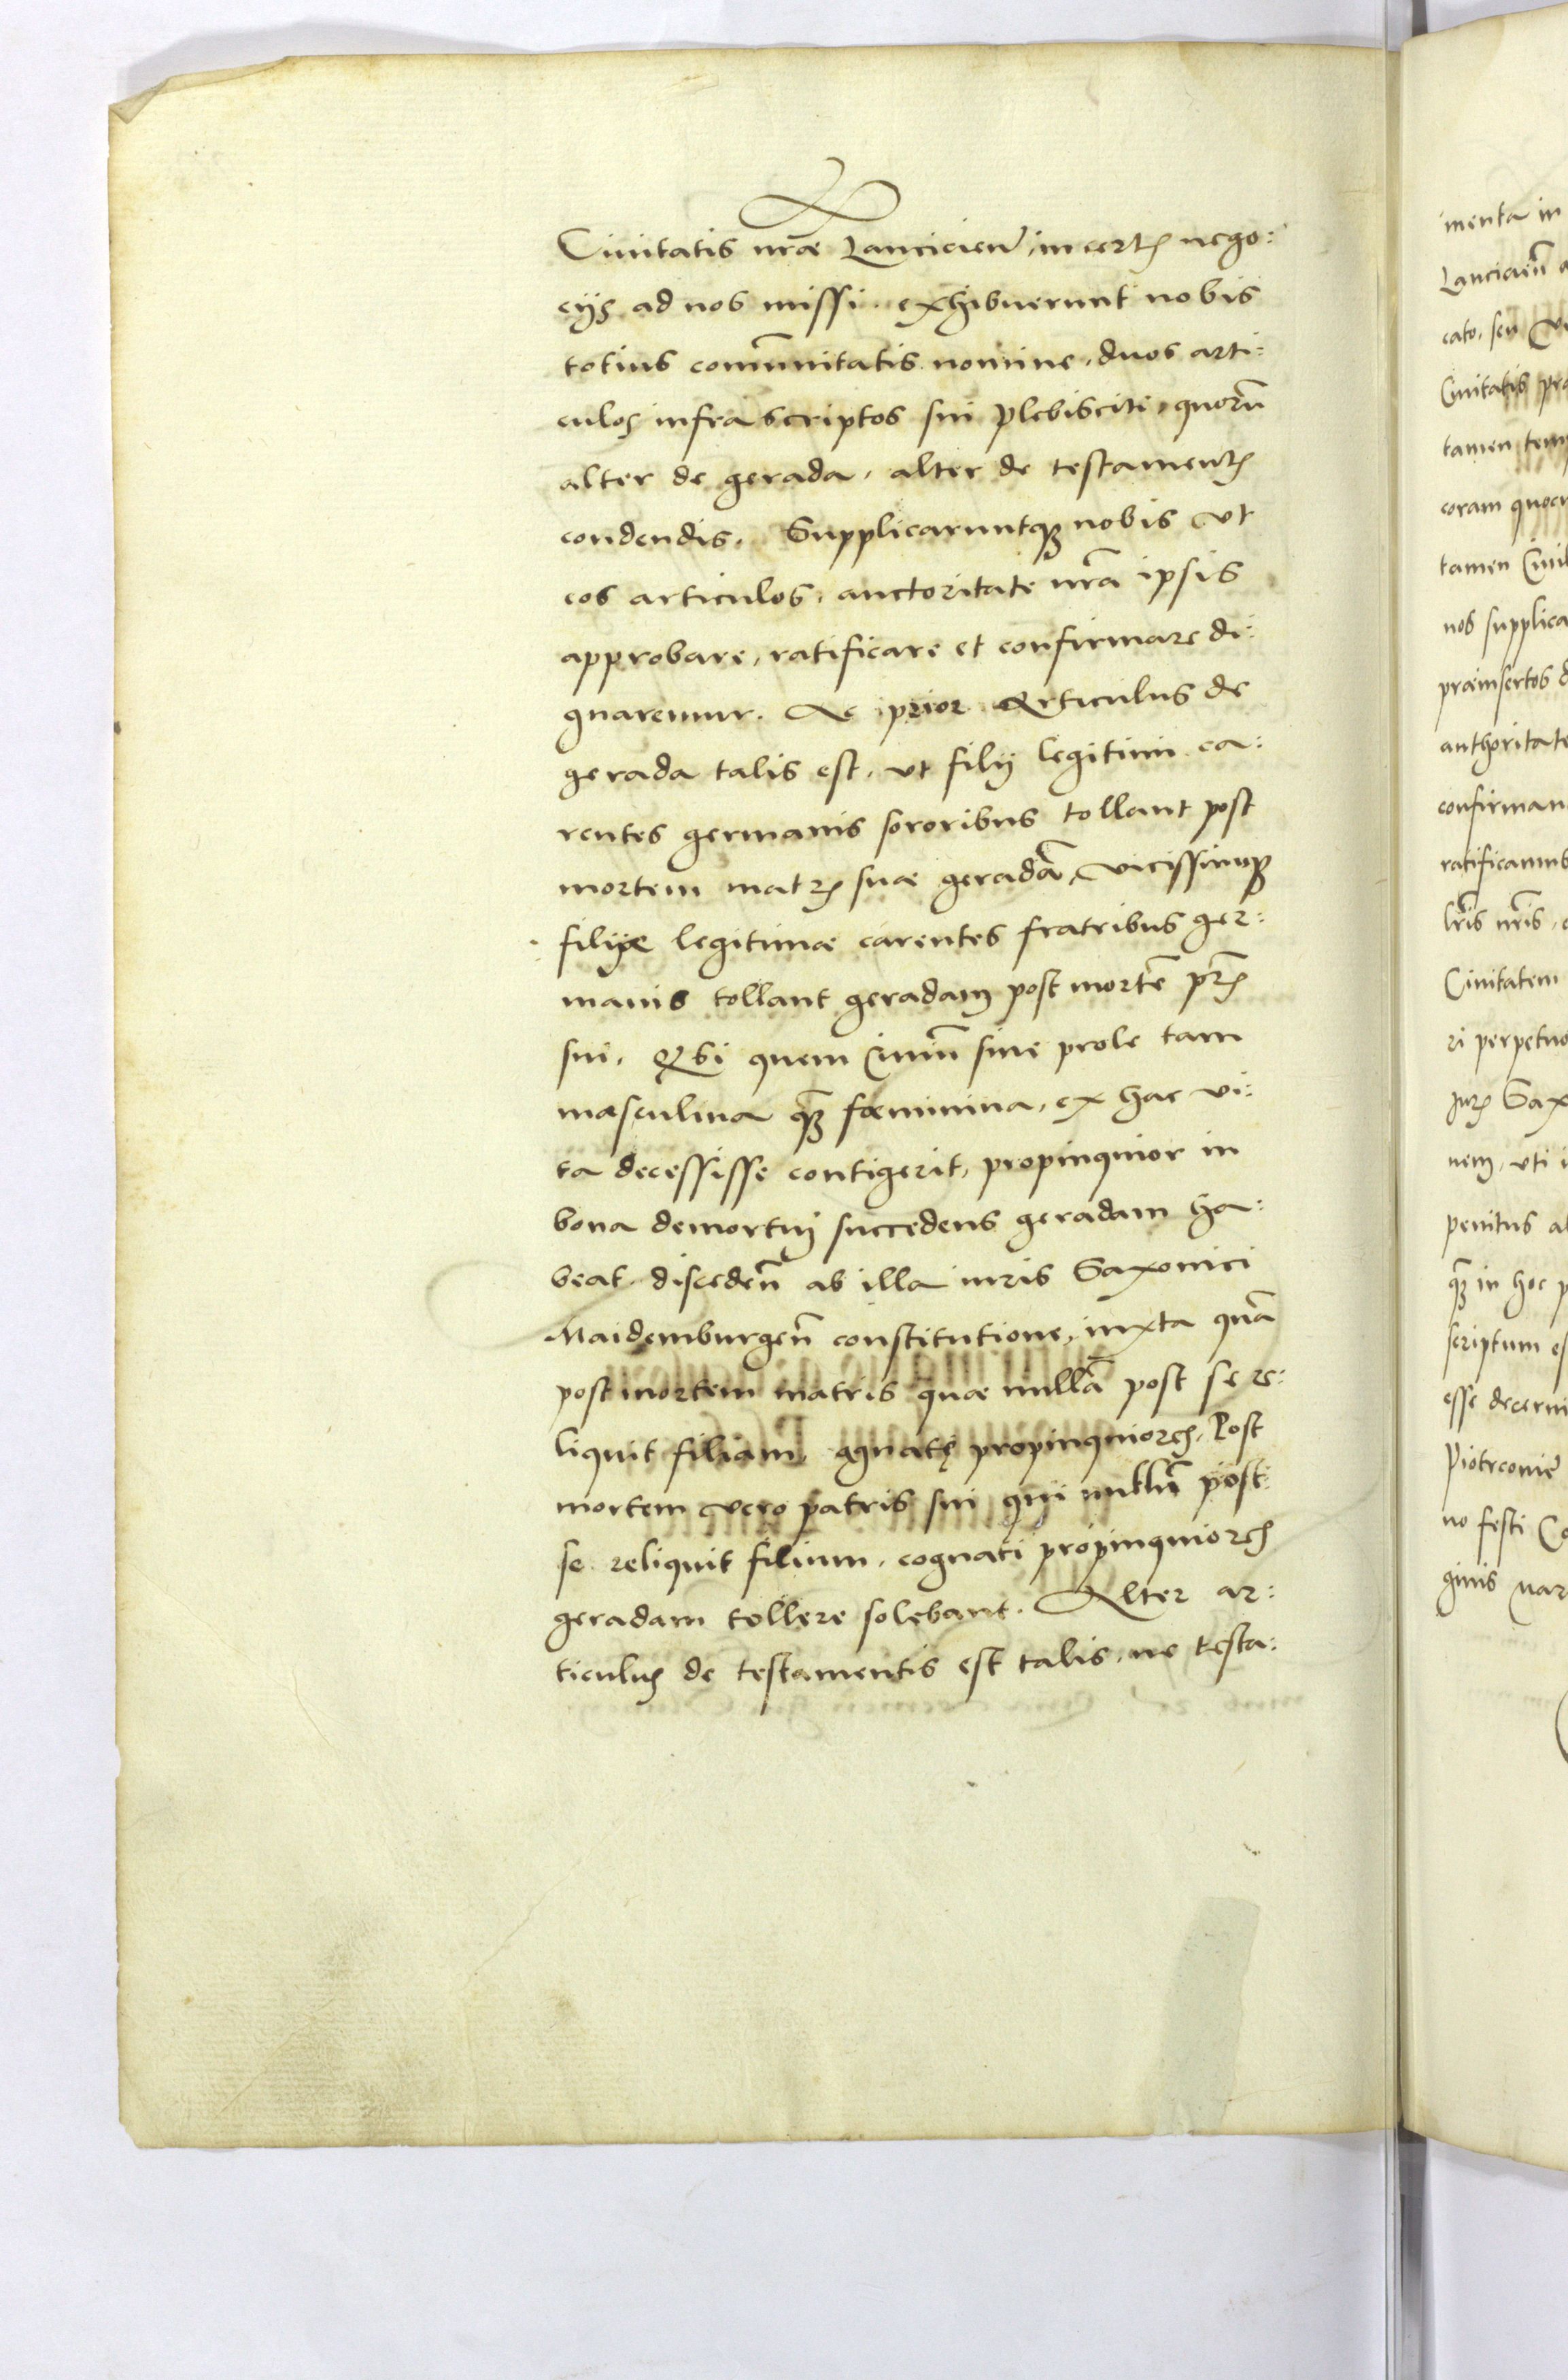 Ciuitatis nrae Lancicien, in certis nego:
cijs ad nos missi. exhibuerunt nobis
totius comunitatis nomine, duos arti:
culos infra scriptos sui plebisciti, quorū
alter de gerada, alter de testamentis
condendis. Supplicaruntq₃ nobis vt
eos articulos, auctoritate nrā ipsis
approbare, ratificare et confirmare di:
gnaremur. Ac prior Articulus de
gerada talis est, vt filij legitimi ca:
rentes germanis sororibus tollant post
mortem matris suae geradā, vicissimq₃
filiae legitimae carentes fratribus ger:
manis tollant geradam post mortē pris
sui. Qʼ si quem Ciuiū sine prole tam
masculina q₃ foeminina, ex hac vi:
ta decessisse contigerit, propinquior in
bona demortui succedens geradam ha:
beat. discedeñ ab illa iuris Saxonici
Maidemburgeñ constitutione, iuxta quā
post mortem matris quae nullā post se re:
liquit filiam, agnati propinquiores, Post
mortem vero patris sui qui nullū post
se reliquit filium, cognati propinquiores
geradam tollere solebant. Alter ar:
ticulus de testamentis est talis, ne testa:
menta in
Lancicieñ
cato, seu
Ciuitatis
tamen
coram
tamen
nos supplica
praeinsertos
authoritate
confirman
ratificamus
lris nris,
Ciuitatem
ri perpetuo
Juris Sax
nem, vti
penitus
q₃ in hoc
scriptum
esse decerni
Piotrcouie
no festi